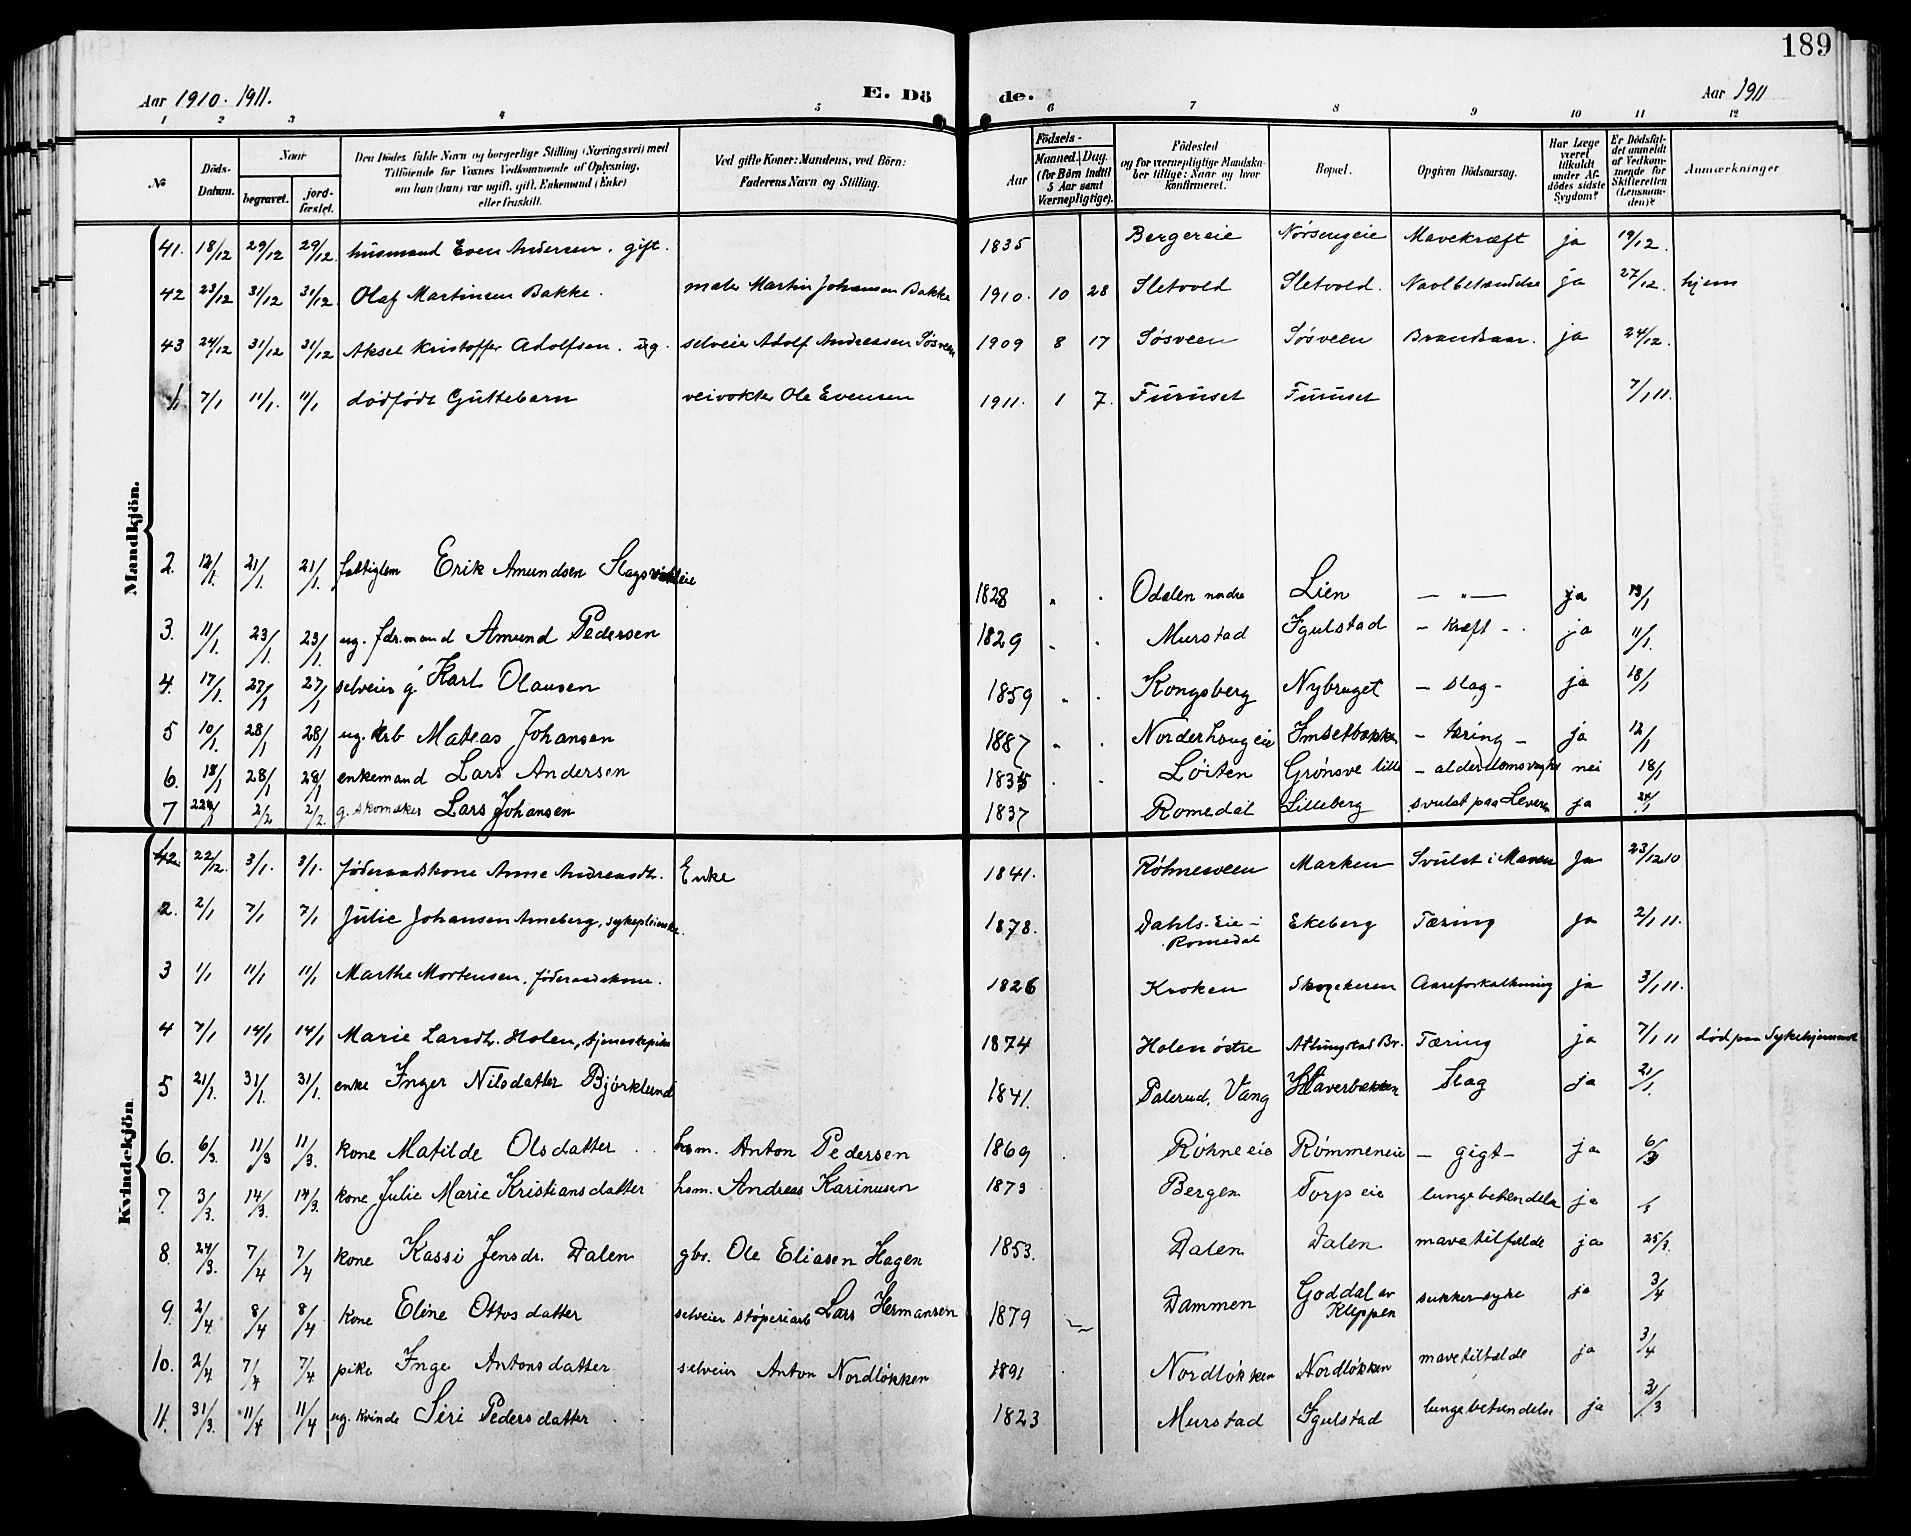 189
Aar 1910. 1911. E. Dö de. Aar 1911
1 2 3 4 5 6 7 8 9 10 11 12
№ Döds-Datum. Naar begravet. jordfæstet. Den Dödes fulde Navn og borgerlige Stilling (Næringsvei) med Tilföiende for Voxnes Vedkommende af Oplysning, om han (hun) var ugift, gift, Enkemand (Enke) eller fraskilt. Ved gifte Koner: Mandens, ved Börn: Faderens Navn og Stilling. Aar Födsels- Maaned. Dag. (for Börn indtil 5 Aar samt Værnepligtige). Födested og for værnepligtige Mandskaber tillige: Naar og hvor konfirmeret. Bopæl. Opgiven Dödsaarsag. Har Læge været tilkaldt under Afdödes sidste Sygdom? Er Dödsfaldet anmeldt af Vedkommende for Skifteretten (Lensmanden)? Anmærkninger
Mandkjön.
41. 18/12 29/12 29/12. husmand Even Andersen. gift. 1835 Bergereie Nørsengeie Mavekræft ja 19/12.
42 23/12 31/12 31/12. Olaf Martinsen Bakke. maler Martin Johansen Bakke 1910. 10 28 Sletvold Sletvold. Navlbetændelse ja 27/12. hjem
43 24/12 31/12 31/12 Aksel Kristoffer Adolfsen. ug. selveier Adolf Andreassen Søsveen 1909 8 17 Søsveen Søsveen Brandsaar. ja 24/12.
1 7/1 11/1. 11/1 dødfødt Guttebarn veivokter Ole Evensen 1911. 1 7. Furuset Furuset 7/1 11.
2. 12/1. 21/1. 21/1. fattiglem Erik Amundsen Slagsvoldeie 1828 Odalen nordre Lien — " — ja 13/1
3. 11/1. 23/1. 23/1. ug. fdr.mand Amund Pedersen 1829 Murstad Igulstad - Kræft - ja 11/1.
4. 17/1. 27/1 27/1 selveier g. Karl Olausen 1859 Kongsberg Nybruget - slag - ja 18/1
5 10/1. 28/1 28/1 ug. arb Mateas Johansen 1887 Norderhaugeie Imsetbakken - tæring - ja 12/1
6. 18/1 28/1 28/1 enkemand Lars Andersen 1835 Løiten Grønsve lille - alderdomsvaghet nei 18/1
7 22/1 2/2 2/2. g. skomaker Lars Johansen 1837 Romedal Lilleberg svulst paa Leveren ja 24/1
Kvindekjön
42. 22/12. 3/1. 3/1. føderaadskone Anne Andreasdt. Enke 1841. Røhnesveen Marken Svulst i Maven Ja 23/12 10
2. 2/1 7/1 7/1 Julie Johansen Arneberg, sykepleierske. 1878. Dahls-Eie - Romedal Ekeberg Tæring ja 2/1 11.
3 1/1 11/1 11/1 Marthe Mortensen, føderaadskone. 1826 Kroken Skogekeren Aareforkalkning ja 3/1 11.
4 7/1 14/1 14/1 Marie Larsdt. Holen, tjenestepike 1874 Holen østre Atlungstad Br. Tæring ja 7/1 11 død paa Sykehjemmet
5 21/1. 31/1. 31/1. enke Inger Nilsdatter Bjørklund 1841. Palerud, Vang Haverbakken Slag ja 21/1.
6. 6/3. 11/3 11/3. kone Matilde Olsdatter hsm. Anton Pedersen 1869 Røhneeie Rømmeneie - gigt - ja 6/3
7. 3/3. 14/3. 14/3. kone Julie Marie Kristiansdatter hsm. Andreas Karinusen 1873 Bergen Torpeie lungebetendelse ja
8. 24/3. 7/4 7/4 kone Kassi Jensdr. Dalen gbr. Ole Eliasen Hagen 1853. Dalen Dalen mavetilfælde ja 25/3.
9. 2/4. 8/4 8/4 kone Eline Ottosdatter selveier støperiarb Lars Hermansen 1879 Dammen Goddal av Kleppen sukkersyke ja 3/4
10. 2/4 7/4 7/4 pike Inge Antonsdatter selveier Anton Nordløkken 1891 Nordløkken Nordløkken mavetilfælde ja 3/4
11. 31/3. 11/4 11/4 ug. kvinde Siri Pedersdatter 1823 Murstad Igulstad lungebetændelse ja 31/3